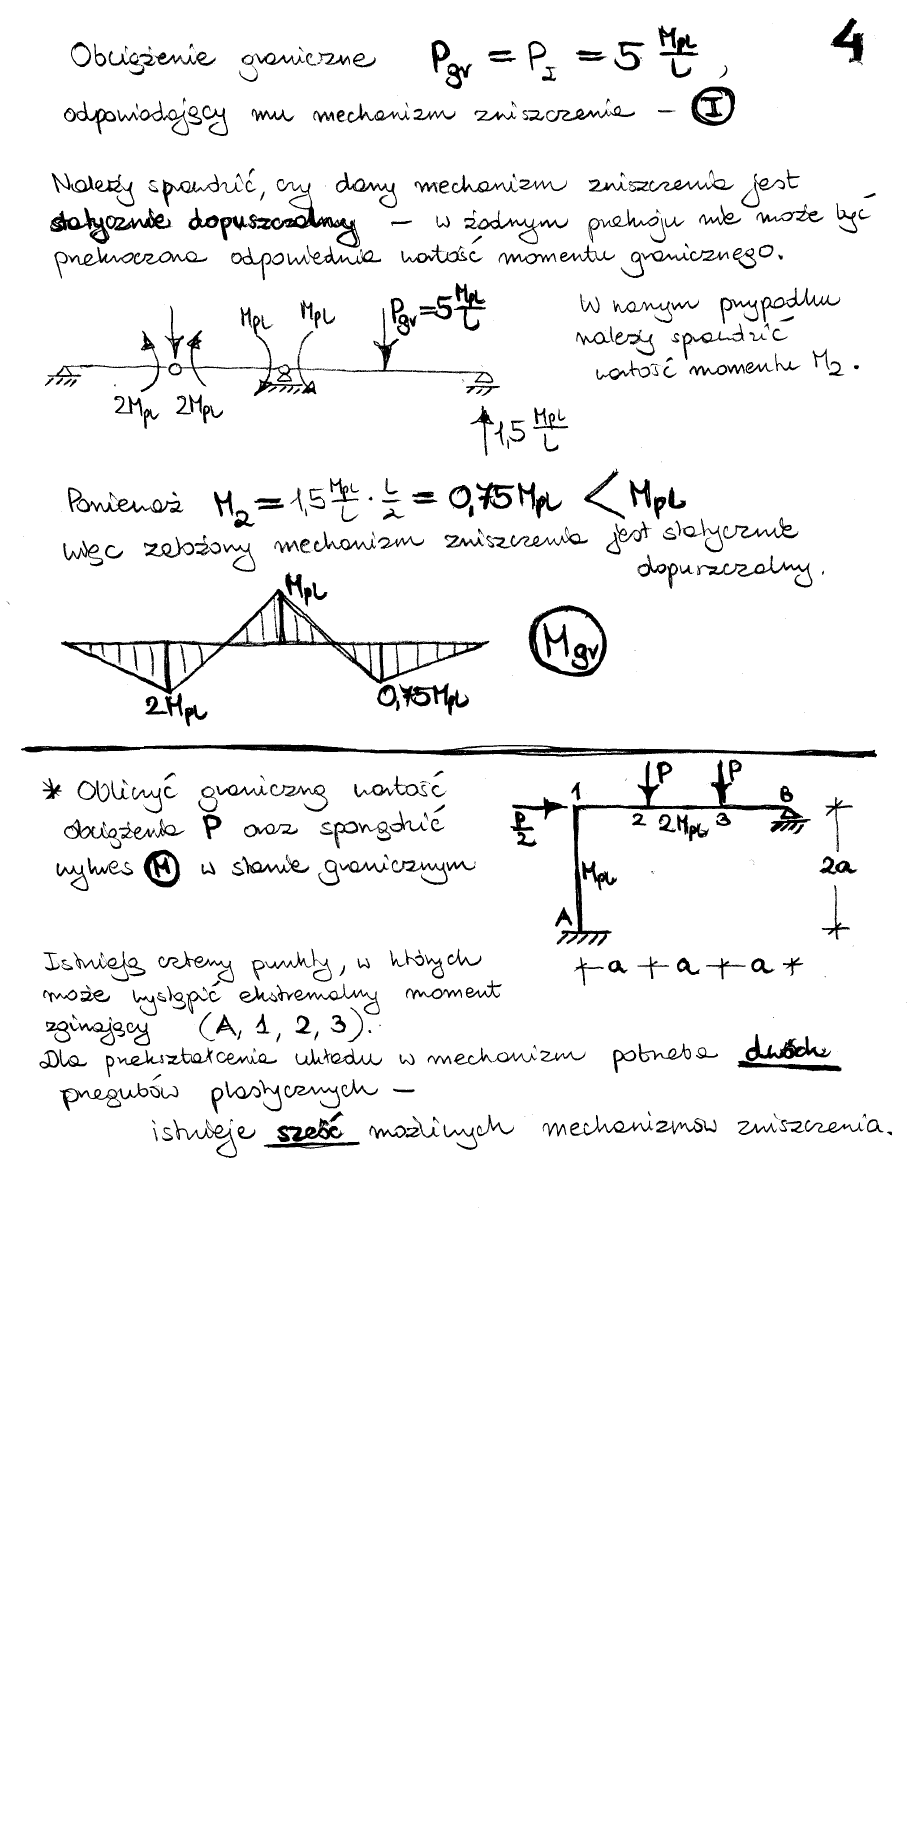 4
Obciążenie graniczne P_gr = P_I = 5 M_PL/L ,
odpowiadający mu mechanizm zniszczenia – I
Należy sprawdzić, czy dany mechanizm zniszczenia jest
statycznie dopuszczalny – w żadnym przekroju nie może być
przekroczona odpowiednia wartość momentu granicznego.
W naszym przypadku
należy sprawdzić
wartość momentu M_2.
M_PL M_PL P_gr=5 M_PL/L
2M_PL 2M_PL
1,5 M_PL/L
Ponieważ M_2 = 1,5 M_PL/L · L/2 = 0,75 M_PL < M_PL
więc założony mechanizm zniszczenia jest statycznie
dopuszczalny.
M_PL
M_gr
2M_PL 0,75M_PL
* Obliczyć graniczną wartość
obciążenia P oraz sporządzić
wykres M w stanie granicznym
P P
1 B
P/2 2 2M_PL 3
M_PL 2a
A
a a a
Istnieją cztery punkty, w których
może wystąpić ekstremalny moment
zginający (A, 1, 2, 3).
Dla przekształcenia układu w mechanizm potrzeba dwóch
przegubów plastycznych –
istnieje sześć możliwych mechanizmów zniszczenia.